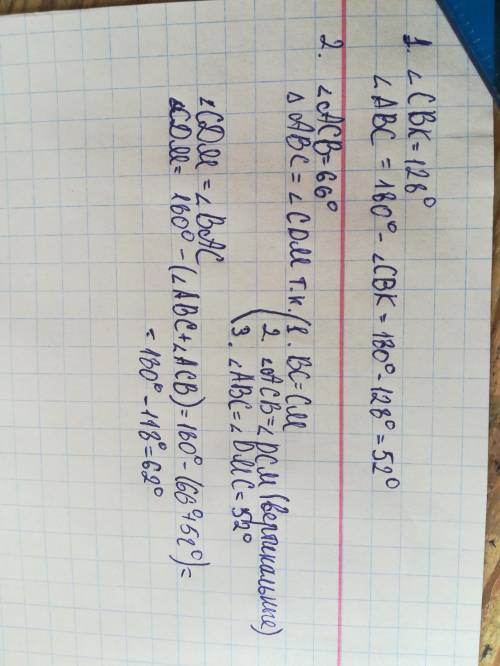 1. ∠CBK=128°
∠ABC = 180° - ∠CBK = 180° - 128° = 52°
2. ∠ACB=66°
△ABC = ∠CDM т.к. (1. BC=CM
2. ∠ACB=∠DCM (вертикальные)
3. ∠ABC=∠DMC=52°
∠CDM = ∠BAC
∠CDM = 180° - (∠ABC+∠ACB)=180°-(66°+52°)=
= 180° - 118° = 62°